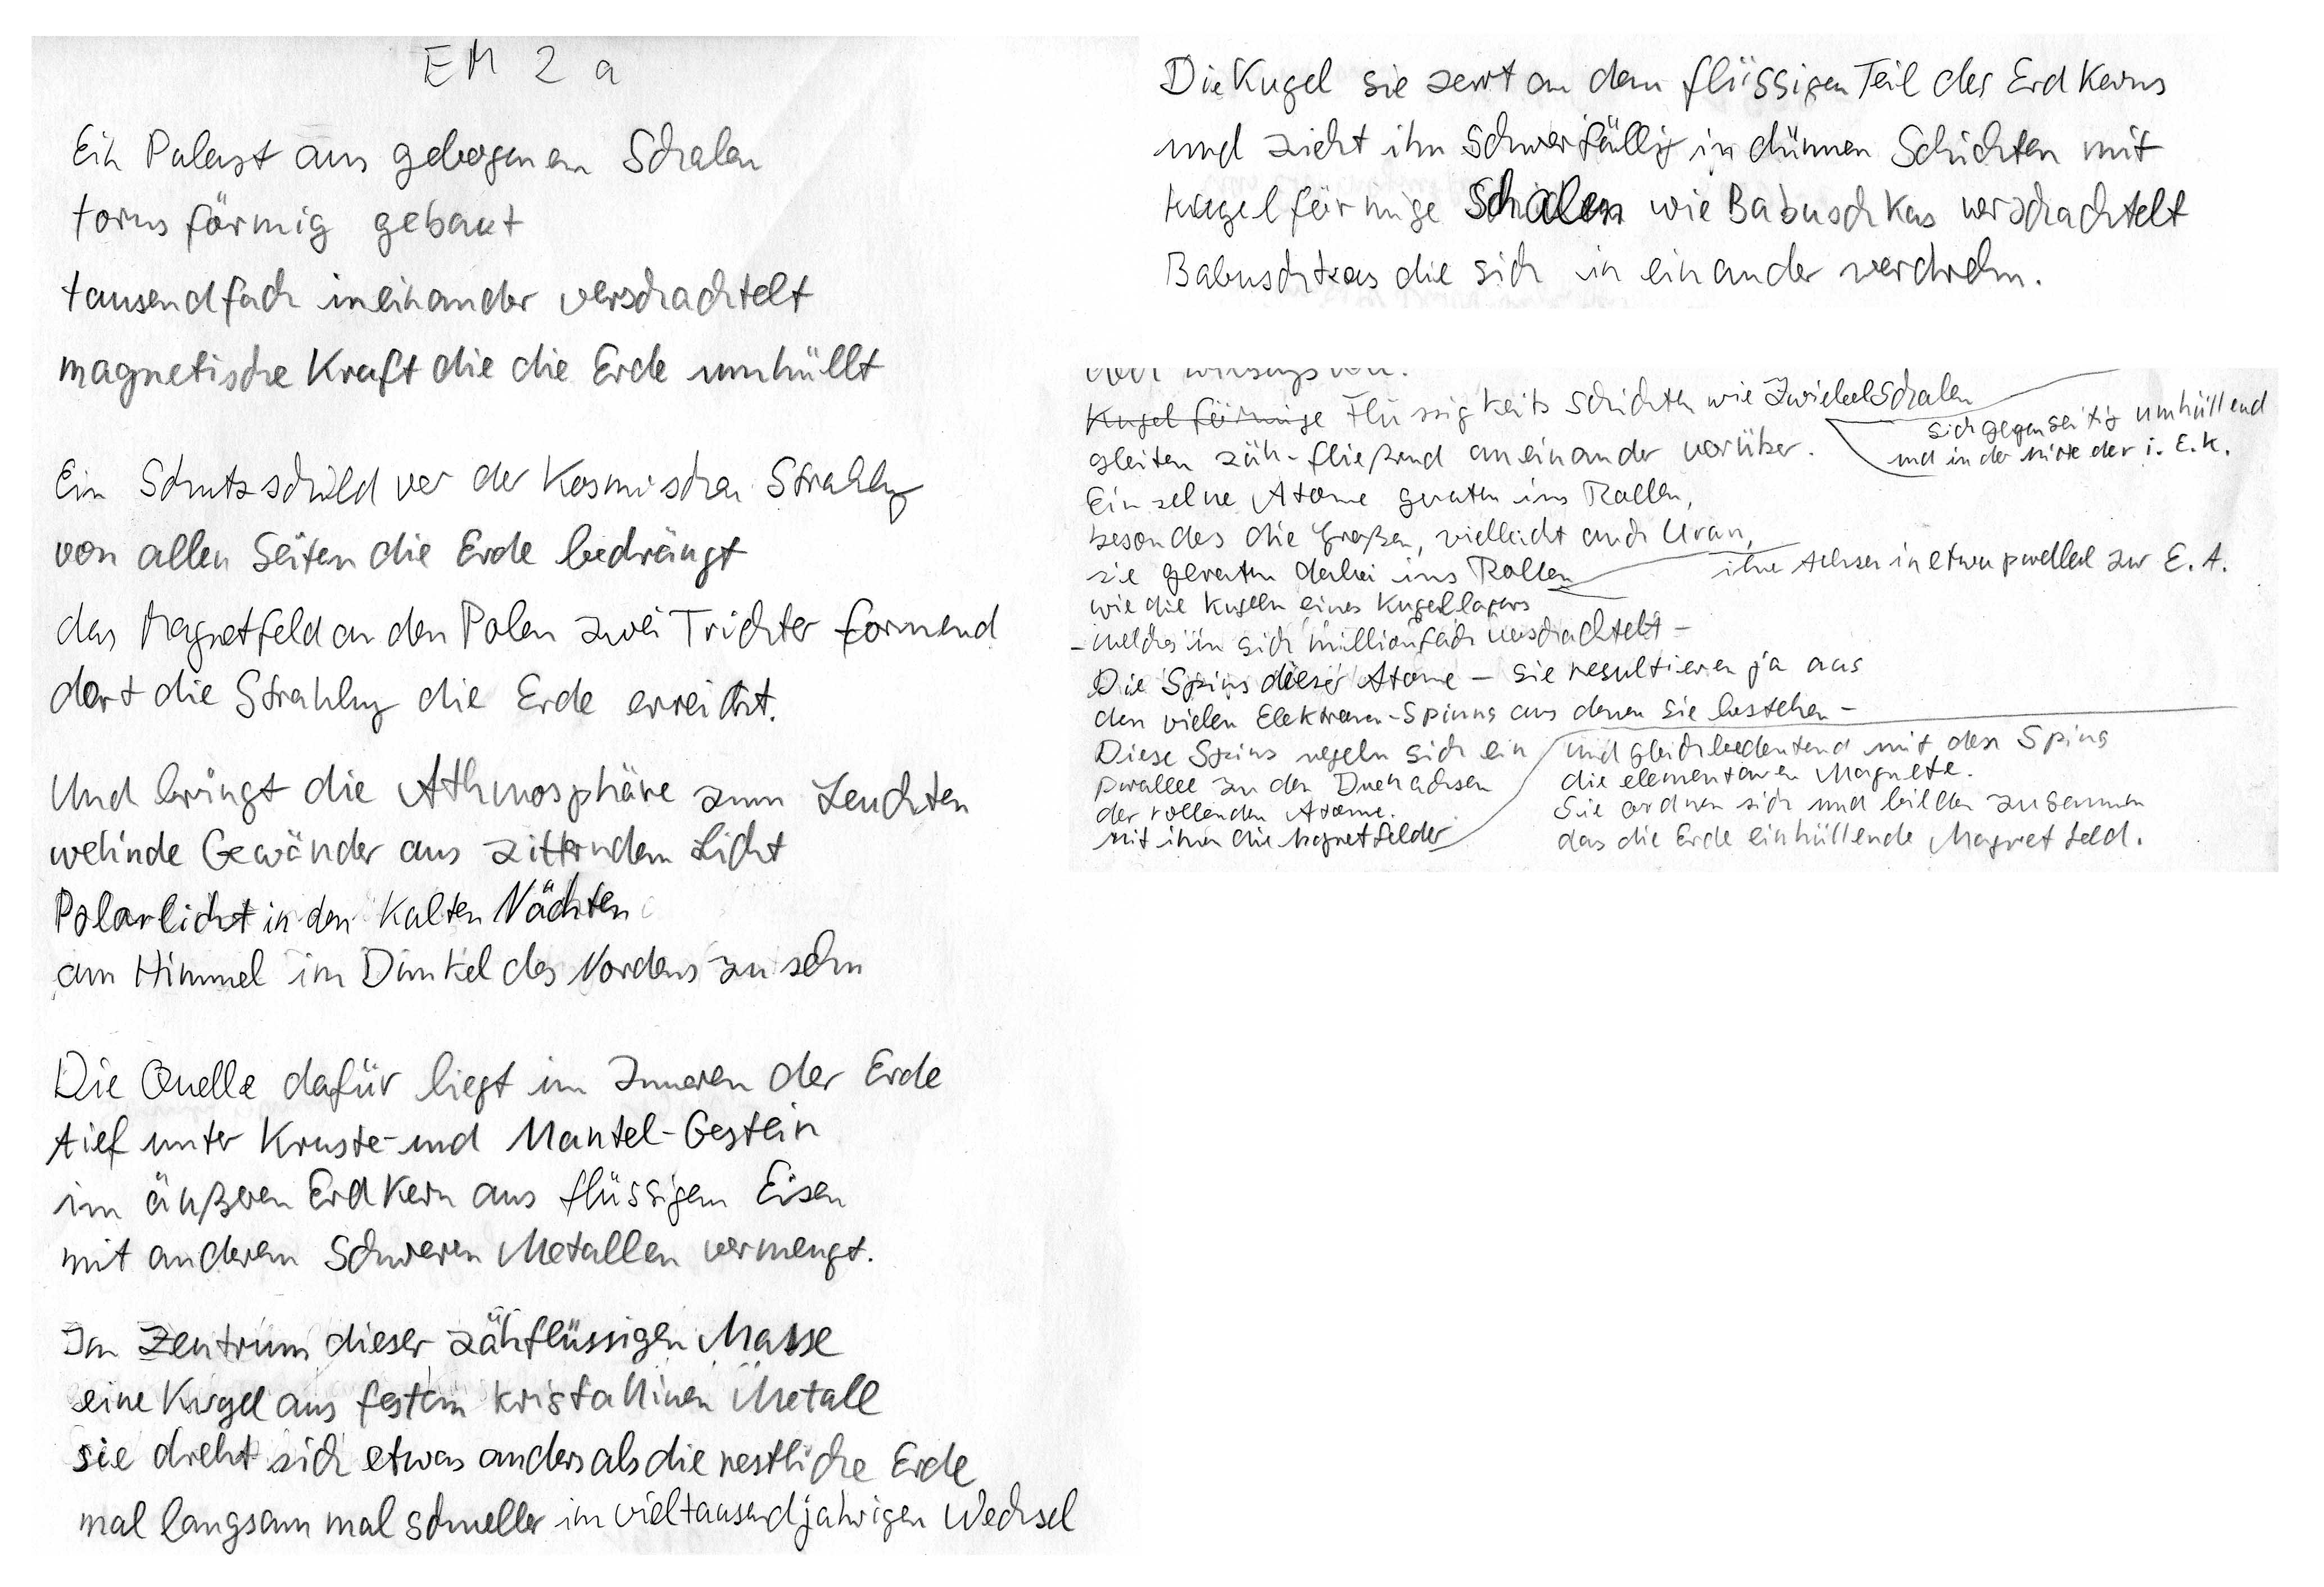 EM 2 a
Ein Palast aus gebogenen Schalen
torusförmig gebaut
tausendfach ineinander verschachtelt
magnetische Kraft die die Erde umhüllt
Ein Schutzschild vor der Kosmischen Strahlung
von allen Seiten die Erde bedrängt
das Magnetfeld an den Polen zwei Trichter formend
dort die Strahlung die Erde erreicht.
Und bringt die Athmosphäre zum Leuchten
wehnde Gewänder aus zitterndem Licht
Polarlicht in den Kalten Nächten
am Himmel im Dunkel des Nordens zu sehn
Die Quelle dafür liegt im Inneren der Erde
tief unter Kruste- und Mantel-Gestein
im äußeren Erdkern aus flüssigem Eisen
mit anderen Schweren Metallen vermengt.
Im Zentrum dieser zähflüssigen Masse
eine Kugel aus festem kristallinen Metall
sie dreht sich etwas anders als die restliche Erde
mal langsam mal schneller im vieltausendjahrigen Wechsel
Die Kugel sie zerrt an dem flüssigen Teil des Erdkerns
und zieht ihn Schwerfällig in dünnen Schichten mit
kugelförmige Schalen wie Babuschkas verschachtelt
Babuschkas die sich in einander verdrehn.
Kugelförmige Flüssigkeits Schichten wie Zwiebelschalen
sich gegenseitig umhüllend
und in der Mitte der i. E. K.
gleiten zäh-fließend aneinander vorüber.
Einzelne Atome geraten ins Rollen,
besondes die Großen, vielleicht auch Uran,
sie geraten dabei ins Rollen
ihre Achsen in etwa parallel zur E. A.
wie die Kugeln eines Kugellagers
- welches in sich millionfach verschachtelt -
Die Spins dieser Atome - sie resultieren ja aus
den vielen Elektronen-Spinns aus denen sie bestehen -
Diese Spins regeln sich ein
parallel zu den Drehachsen
der rollenden Atome.
mit ihnen die Magnetfelder
und gleichbedeutend mit den Spins
die elementaren Magnete.
Sie ordnen sich und bilden zusammen
das die Erde einhüllende Magnetfeld.